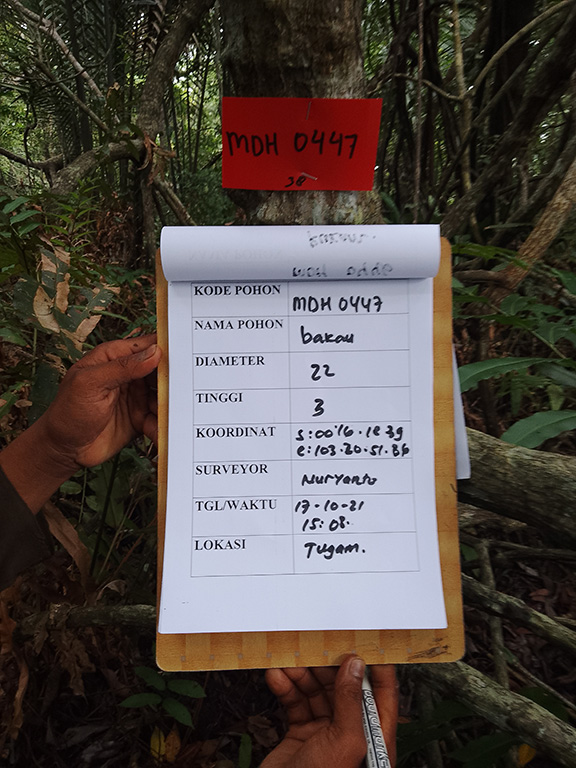 MDH 0447
38
bakau
KODE POHON MDH 0447
NAMA POHON bakau
DIAMETER 22
TINGGI 3
KOORDINAT S:00'16.18 39
E:103.20.51.86
SURVEYOR Nuryanto
TGL/WAKTU 17-10-21
15:08.
LOKASI Tugam.